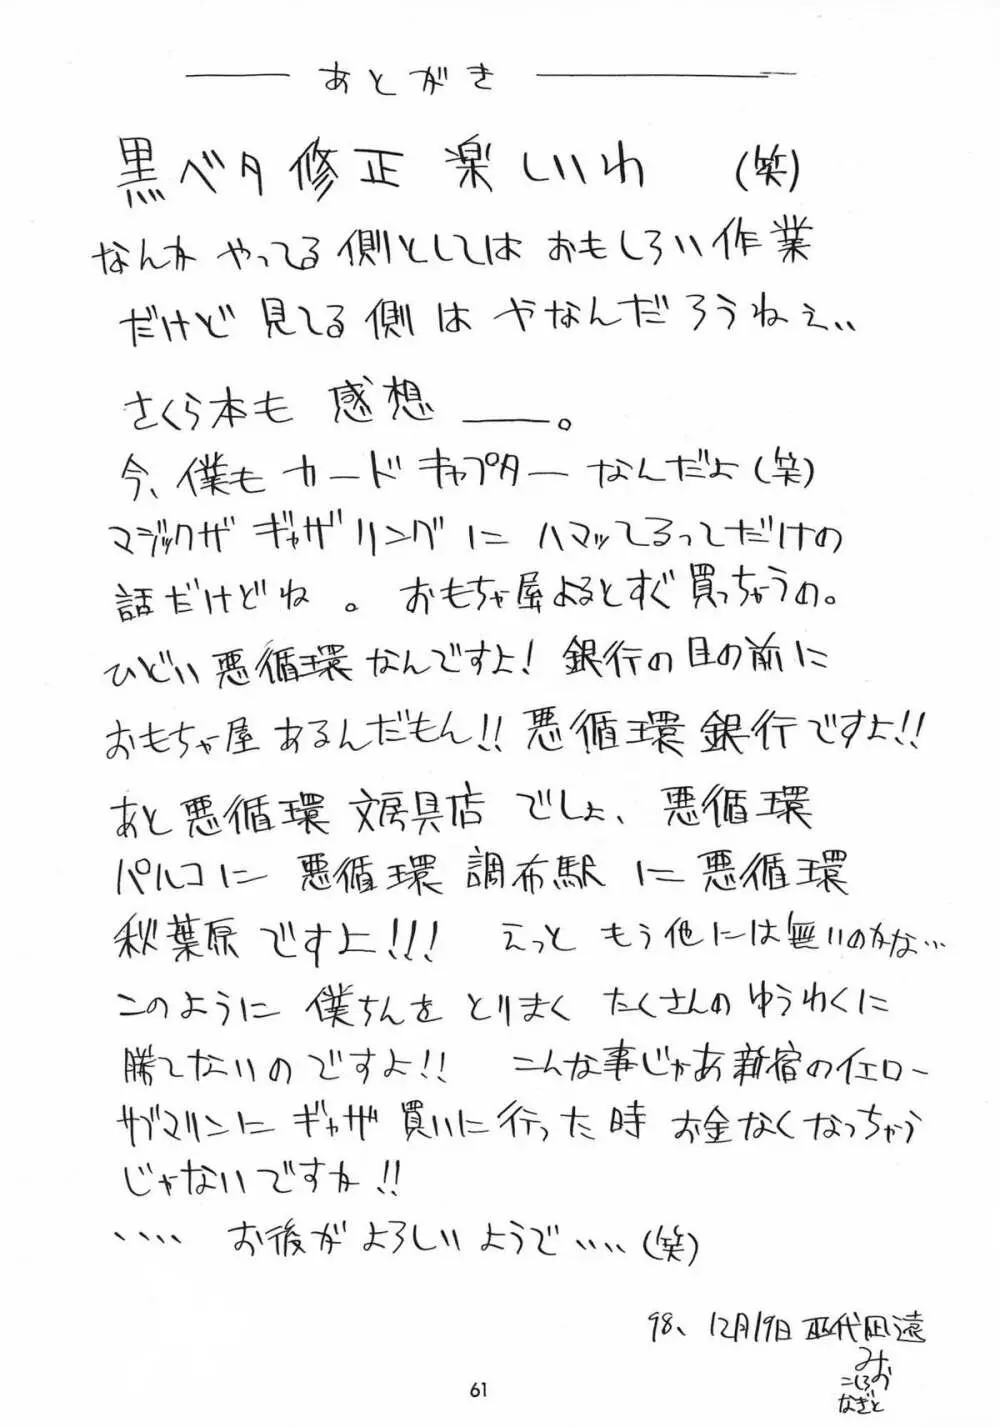 あとがき
黒ベタ修正 楽しいわ (笑)
なんか やってる側としては おもしろい作業
だけど 見てる側は やなんだろうねぇ..
さくら本も 感想 ――。
今、僕も カードキャプター なんだよ(笑)
マジックザ ギャザリングに ハマッてるってだけの
話だけどね 。 おもちゃ屋よるとすぐ買っちゃうの。
ひどい 悪循環なんですよ! 銀行の目の前に
おもちゃ屋 あるんだもん!! 悪循環 銀行ですよ!!
あと悪循環 文房具店 でしょ、 悪循環
パルコに 悪循環 調布駅 に 悪循環
秋葉原 ですよ!!! えっと もう他には無いのかな…
このように 僕ちんを とりまく たくさんの ゆうわくに
勝てないのですよ!! こんな事じゃあ新宿のイエロー
サブマリンに ギャザ 買いに行った時 お金なくなっちゃう
じゃないですか!!
‥‥ お後がよろしいようで‥‥(笑)
98、12月19日 巫代凪遠
みお
こしろ
なぎと
61